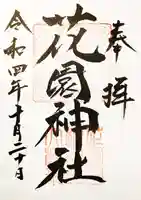 奉拝
花園神社
令和四年十月二十日